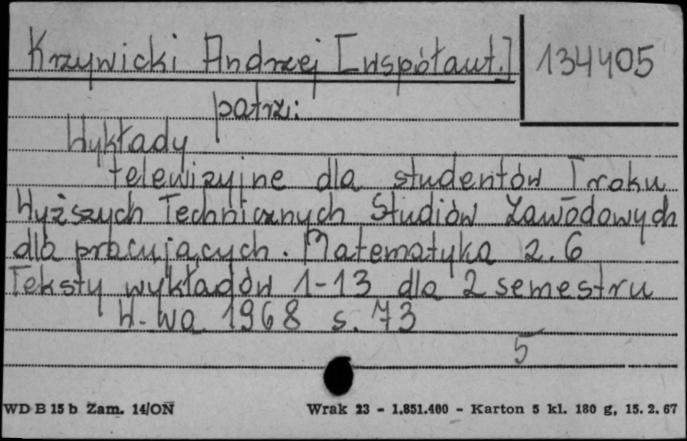 Krzywicki Andrzej [współaut.] 134405
patrz:
Wykłady
telewizyjne dla studentów I roku
Wyższych Technicznych Studiów Zawodowych
dla pracujących. Matematyka z. 6
Teksty wykładów 1-13 dla 2 semestru
W-wa 1968 s. 73
5
WD B 15 b Zam. 14/ON Wrak 23 - 1.851.400 - Karton 5 kl. 180 g, 15. 2. 67